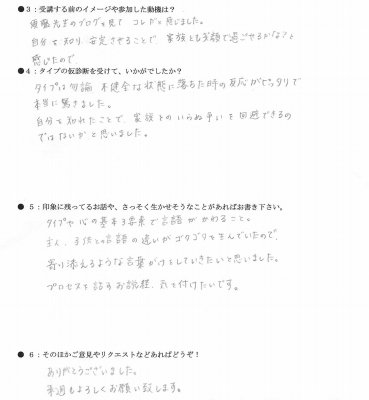 ●３：受講する前のイメージや参加した動機は？
先生のブログを見て コレだと感じました。
自分を知り、安定させることで、家族とも笑顔で過ごせるかな？と
感じたので
●４：タイプの仮診断を受けて、いかがでしたか？
タイプは勿論 不健全な状態に落ちた時の反応がピッタリで
本当に驚きました。
自分を知れたことで、家族とのいらぬ争いを回避できるの
ではないかと思いました。
● ５：印象に残ってるお話や、さっそく生かせそうなことがあればお書き下さい。
タイプや心の基本3要素で言語がかわること。
主人、子供との言語の違いがゴタゴタを生んでいたので、
寄り添えるような言葉がけをしていきたいと思いました。
プロセスを話すお説程、気を付けたいです。
● ６：そのほかご意見やリクエストなどあればどうぞ！
ありがとうございました。
来週もよろしくお願い致します。